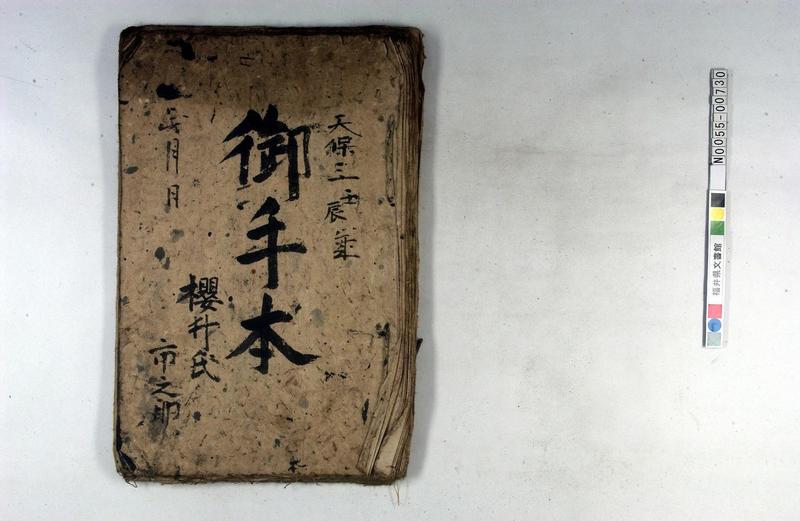 天保三壬辰年
御手本
櫻井氏
市之助
月月
N0055-00730
福井県文書館